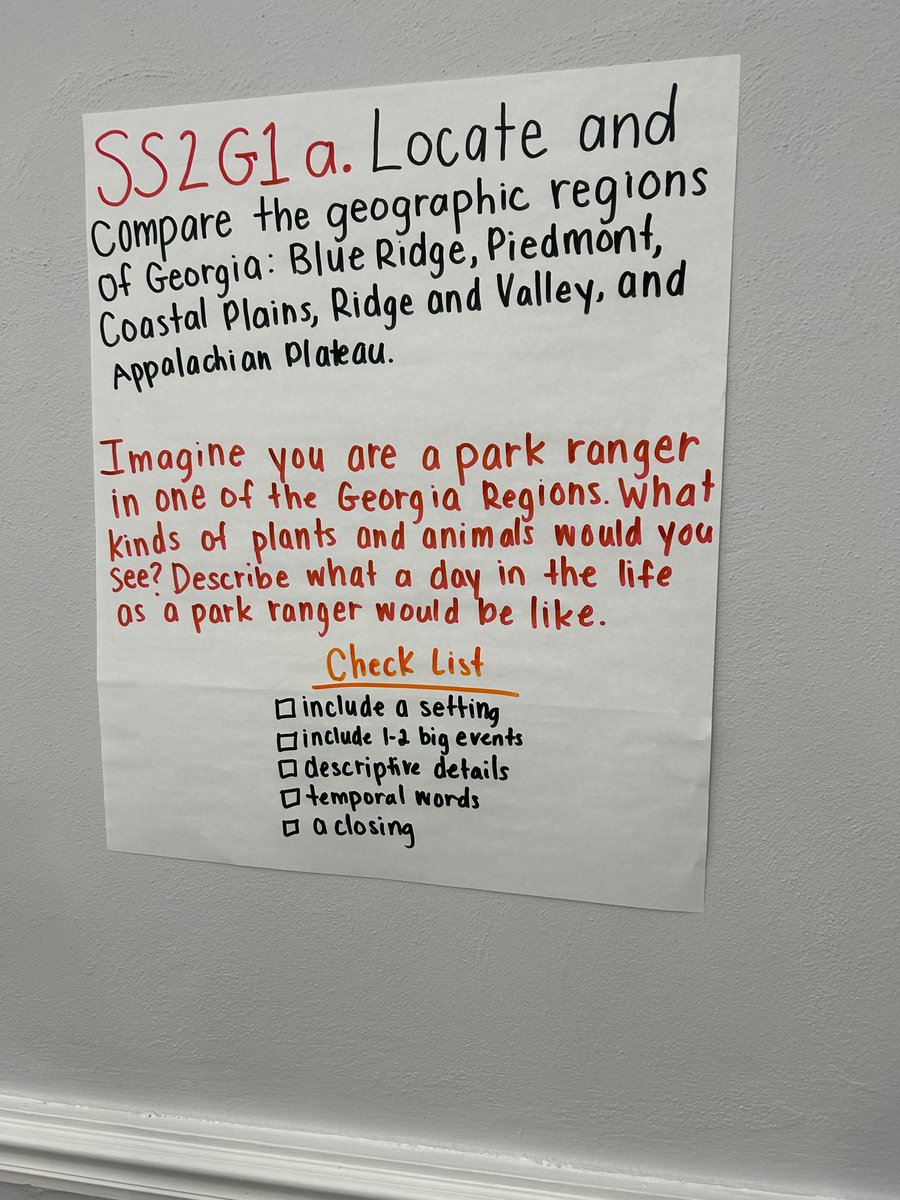 SS2G1a. Locate and
Compare the geographic regions
Of Georgia: Blue Ridge, Piedmont,
Coastal Plains, Ridge and Valley, and
Appalachian Plateau.
Imagine you are a park ranger
in one of the Georgia Regions. What
kinds of plants and animals would you
see? Describe what a day in the life
as a park ranger would be like.
Check List
☐ include a setting
☐ include 1-2 big events
☐ descriptive details
☐ temporal words
☐ a closing